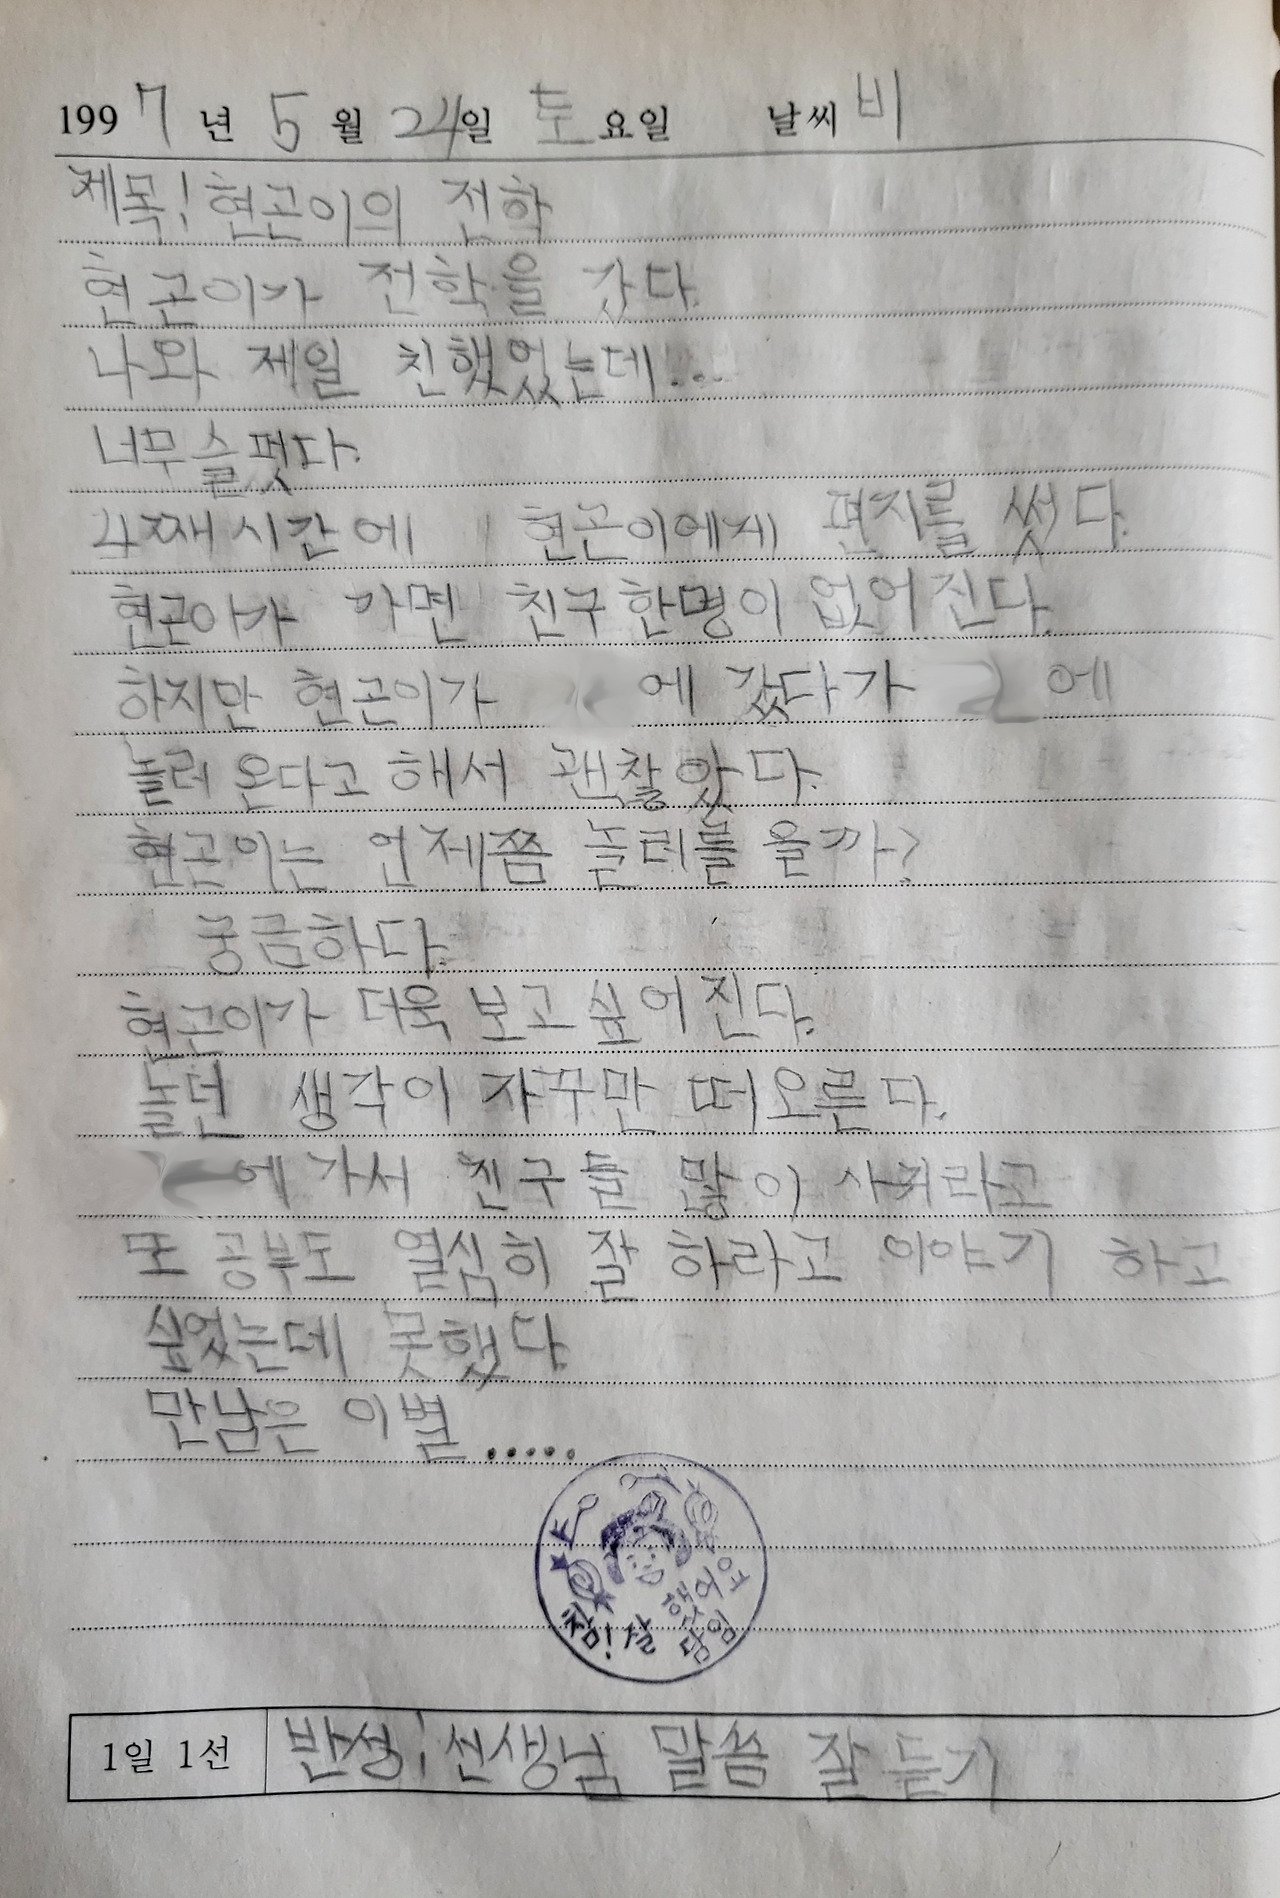 1997년 5월 24일 토요일 날씨 비
제목! 현곤이의 전학
현곤이가 전학을 갔다.
나와 제일 친했었는데...
너무슬펏다.
4째시간에 현곤이에게 편지를 썻다.
현곤이가 가면 친구한명이 없어진다.
하지만 현곤이가 에 갔다가 에
놀러 온다고 해서 괜찮았다.
현곤이는 언제쯤 놀러를 올까?
궁금하다.
현곤이가 더욱 보고싶어진다.
놀던 생각이 자꾸만 떠오른다.
에 가서 친구들 많이 사귀라고
또 공부도 열심히 잘 하라고 이야기 하고
싶었는데 못했다
만남은 이별.....
참! 잘 했어요
담임
1일 1선 반성! 선생님 말씀 잘 듣기